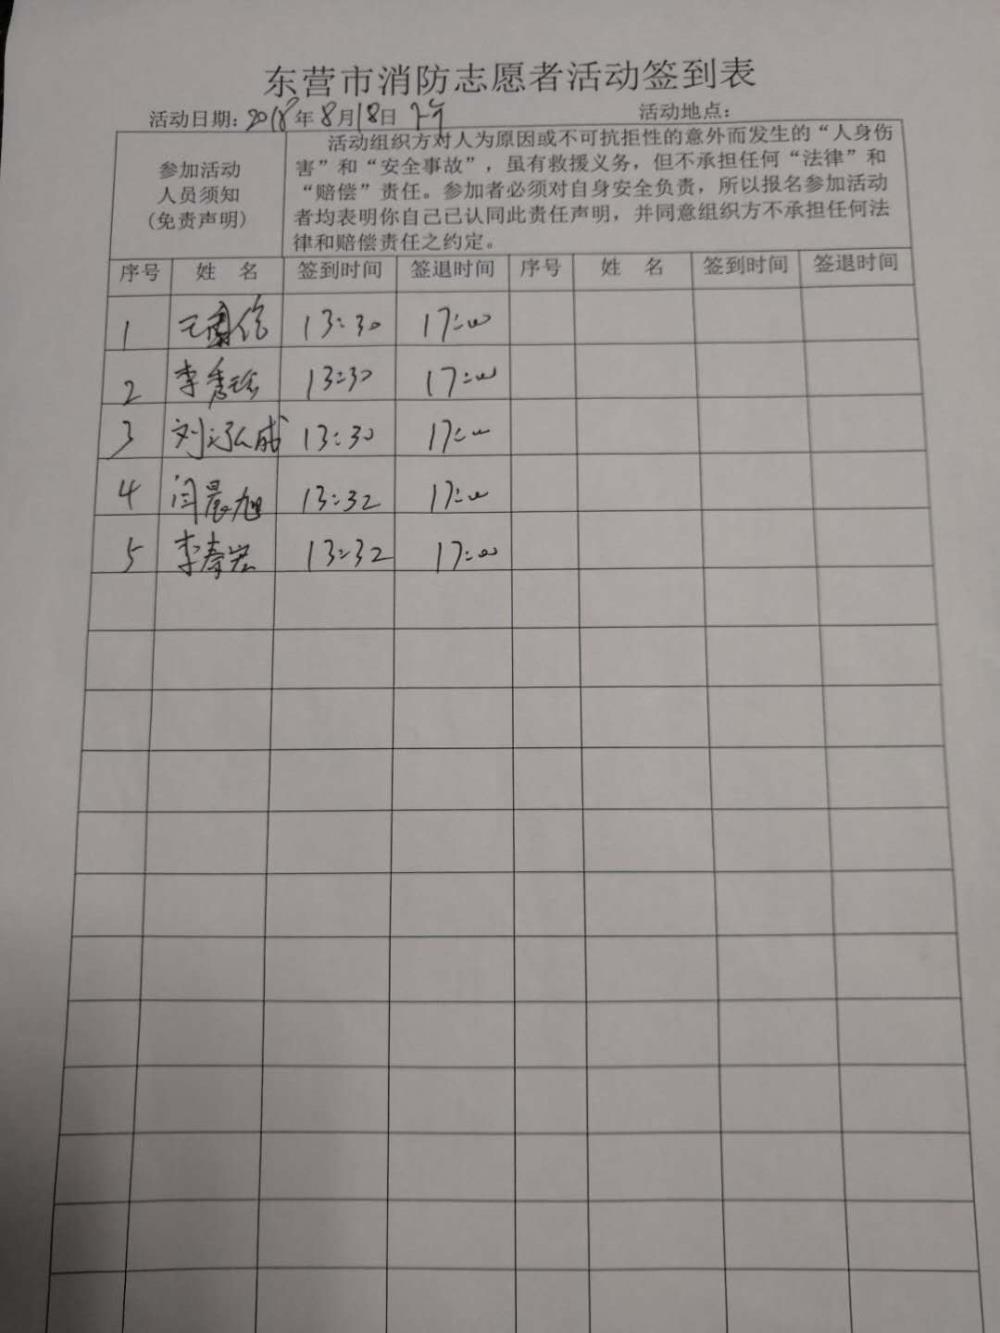 东营市消防志愿者活动签到表
活动日期：2018年8月18日 下午 活动地点：
参加活动
人员须知
(免责声明)
活动组织方对人为原因或不可抗拒性的意外而发生的“人身伤
害”和“安全事故”，虽有救援义务，但不承担任何“法律”和
“赔偿”责任。参加者必须对自身安全负责，所以报名参加活动
者均表明你自己已认同此责任声明，并同意组织方不承担任何法
律和赔偿责任之约定。
序号 姓 名 签到时间 签退时间 序号 姓 名 签到时间 签退时间
1 王 信 13:30 17:00
2 李秀珍 13:30 17:00
3 刘泓成 13:30 17:00
4 闫晨旭 13:32 17:00
5 李秦宏 13:32 17:00